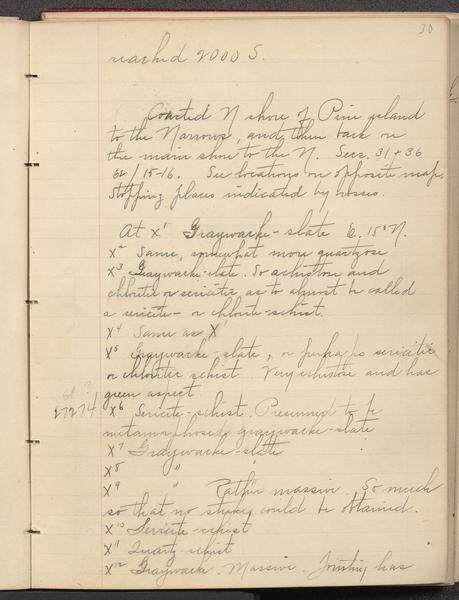 30
reached 2000 S.
Coasted N shore of Pine island
to the Narrows, and then back on
the main shore to the N. Secs. 31 + 36
62/15-16. See locations on opposite map.
Stopping places indicated by crosses.
At X¹ Graywacke-slate E. 15° N.
X² Same, somewhat more quartzose
X³ Graywacke-slate. So schistose and
chloritic or sericitic as to almost be called
a sericite- or chlorite-schist.
X⁴ Same as X¹
X⁵ Graywacke-slate, or perhaps sericitic
or chloritic schist. Very schistose and has
green aspect
27274 X⁶ Sericite-schist. Presumed to be
metamorphosed graywacke-slate
X⁷ Graywacke-slate
X⁸ "
X⁹ " Rather massive. So much
so that no strike could be obtained.
X¹⁰ Sericite-schist
X¹¹ Quartz-schist
X¹² Graywacke. Massive. Jointing has